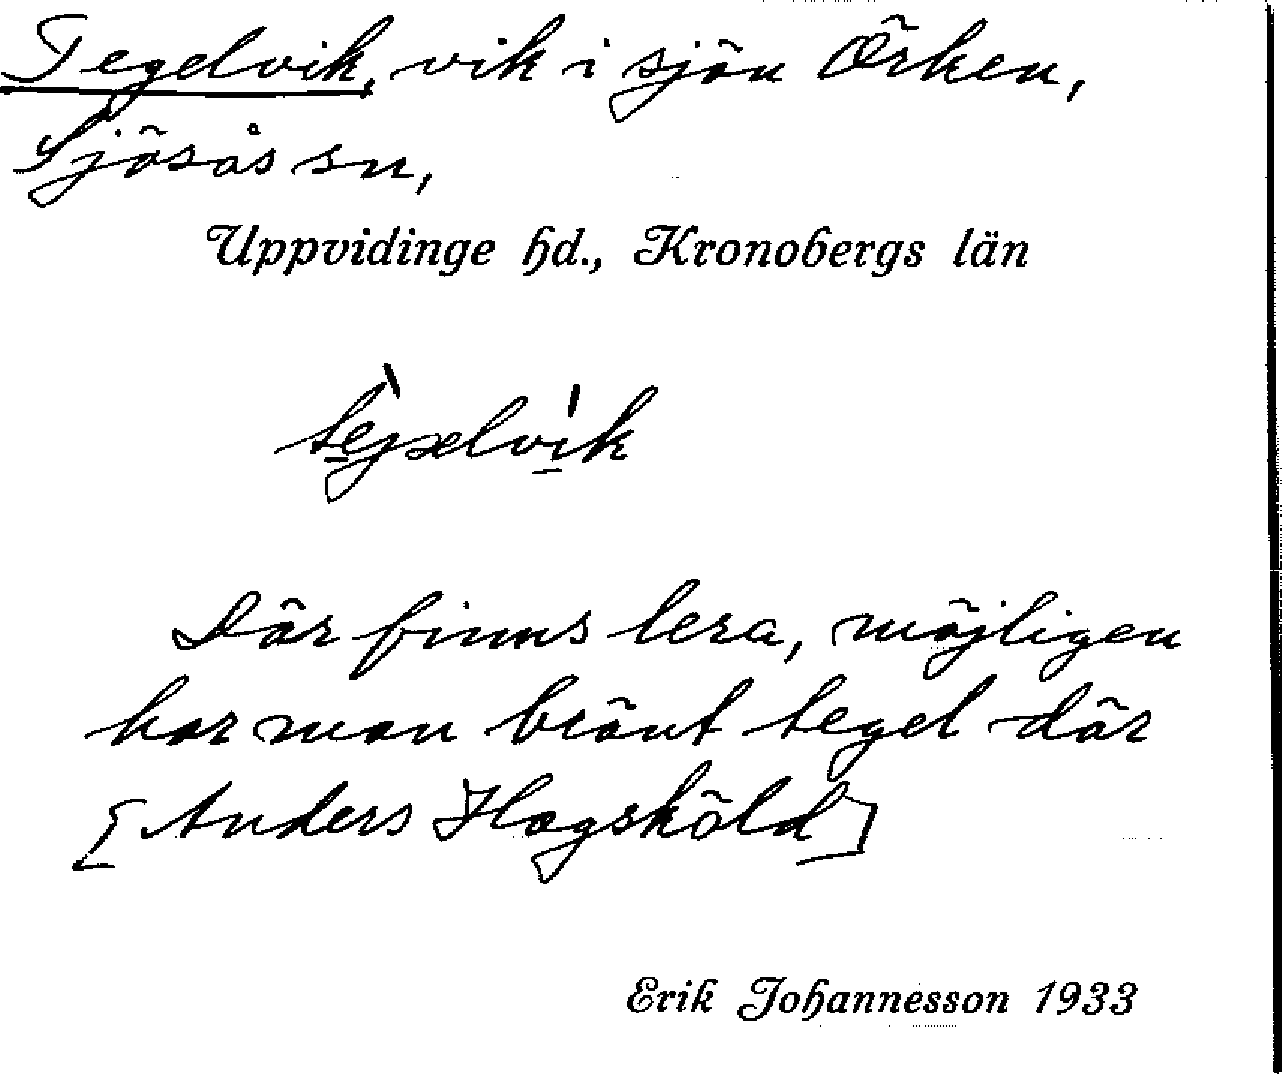 Tegelvik, vik i sjön Örken,
Sjösås sn,
Uppvidinge hd., Kronobergs län
tè̠gəlvi̠k
Där finns lera, möjligen
har man bränt tegel där
[Anders Hagsköld]
Erik Johannesson 1933